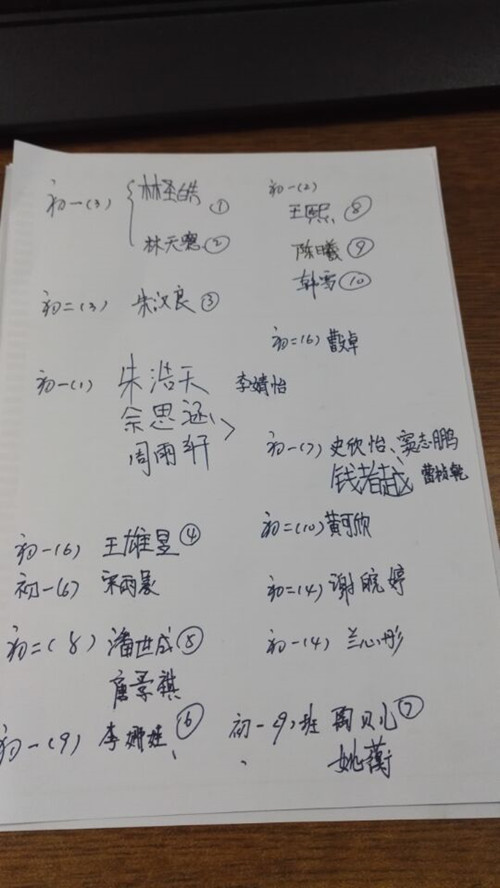 初一(3) 林圣皓 ①
林天 ②
初二(3) 朱汉良 ③
初一(1) 朱浩天 李婧怡
余思涵
周雨轩
初一(6) 王雄昱 ④
初一(6) 宋雨
初二(8) 潘世成 ⑤
唐景祺
初一(9) 李娜娃 ⑥
初一(2)
王熙 ⑧
陈曦 ⑨
韩雪 ⑩
初二(6) 曹卓
初一(7) 史欣怡、窦志鹏
钱者越 曹桢乾
初二(10) 黄可欣
初二(4) 谢皖婷
初一(4) 兰心彤
初一(9)班 陶贝儿 ⑦
姚蘅